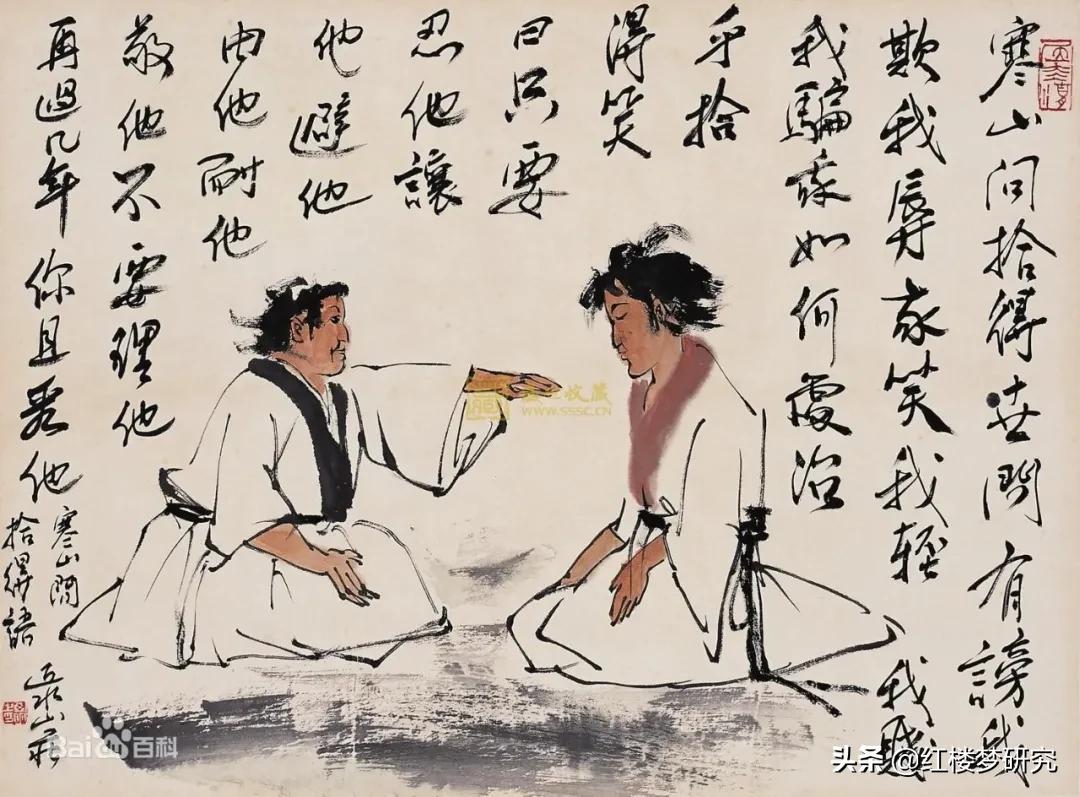 寒山问拾得世間有謗我
欺我辱我笑我輕我賤
我騙我如何處治
乎拾
得笑
曰只要
忍他讓
他避他
由他耐他
敬他不要理他
再過几年你且看他
寒山問
拾得語
收藏
WWW.SSSC.CN
Bai百科
头条 @红楼梦研究